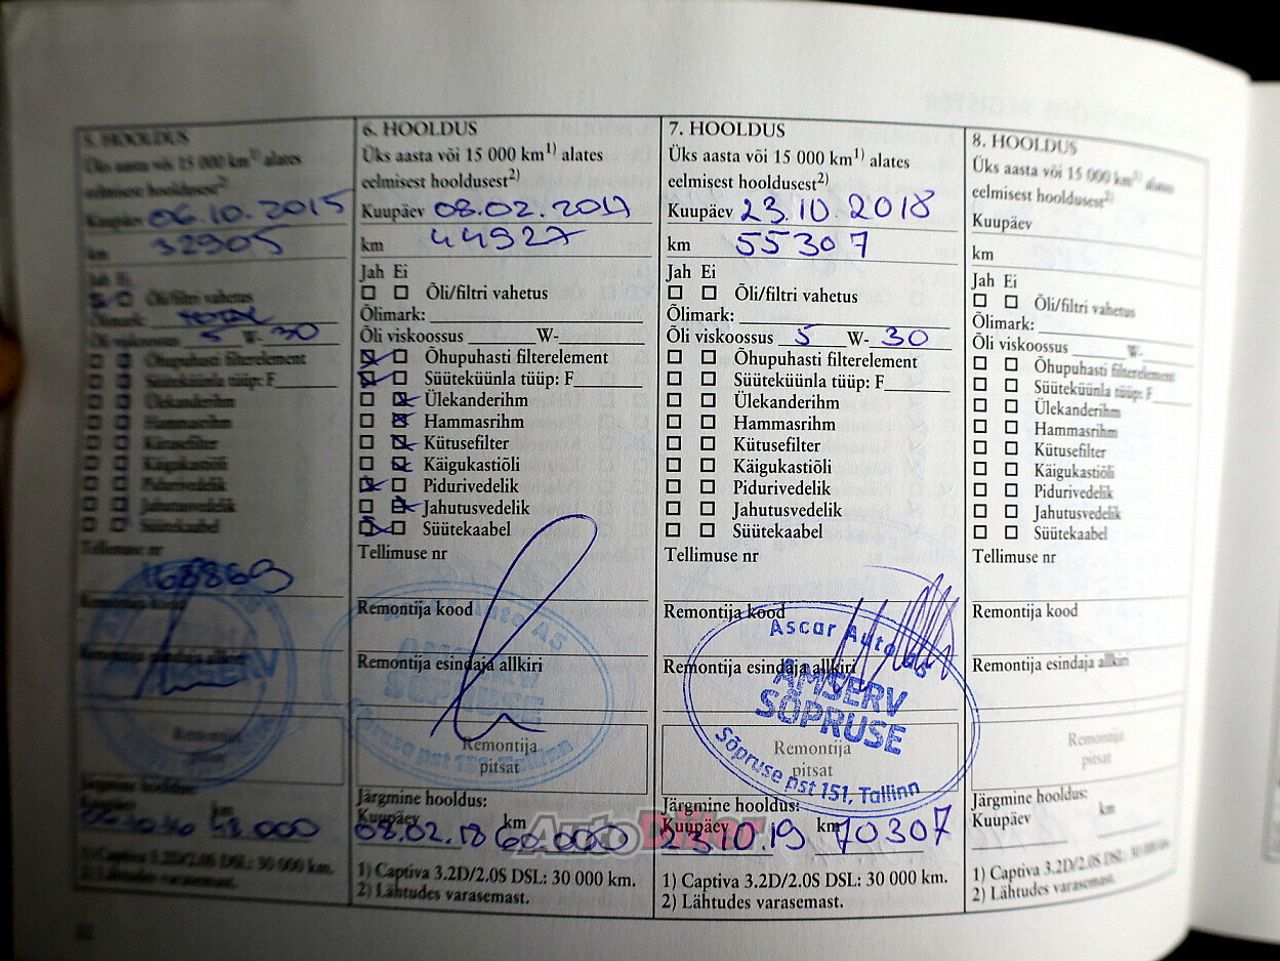 5. HOOLDUS
Üks aasta või 15 000 km1) alates
eelmisest hooldusest2)
Kuupäev 06.10.2015
km 32905
Jah Ei
Õli/filtri vahetus
Õlimark: TOTAL
Õli viskoossus 5 W- 30
Õhupuhasti filterelement
Süüteküünla tüüp: F
Ülekanderihm
Hammasrihm
Kütusefilter
Käigukastiõli
Pidurivedelik
Jahutusvedelik
Süütekaabel
Tellimuse nr
168869
Remontija kood
Remontija esindaja allkiri
AMSERV
Remontija
pitsat
Järgmine hooldus:
Kuupäev km
000
1) Captiva 3.2D/2.0S DSL: 30 000 km.
2) Lähtudes varasemast.
6. HOOLDUS
Üks aasta või 15 000 km1) alates
eelmisest hooldusest2)
Kuupäev 08.02.2017
km 44927
Jah Ei
Õli/filtri vahetus
Õlimark:
Õli viskoossus W-
Õhupuhasti filterelement
Süüteküünla tüüp: F
Ülekanderihm
Hammasrihm
Kütusefilter
Käigukastiõli
Pidurivedelik
Jahutusvedelik
Süütekaabel
Tellimuse nr
Remontija kood
Auto AS
Remontija esindaja allkiri
SÕPRUSE
Sõpruse pst 151, Tallinn
Remontija
pitsat
Järgmine hooldus:
Kuupäev km
08.02.18 60.000
1) Captiva 3.2D/2.0S DSL: 30 000 km.
2) Lähtudes varasemast.
7. HOOLDUS
Üks aasta või 15 000 km1) alates
eelmisest hooldusest2)
Kuupäev 23.10.2018
km 55307
Jah Ei
Õli/filtri vahetus
Õlimark:
Õli viskoossus 5 W- 30
Õhupuhasti filterelement
Süüteküünla tüüp: F
Ülekanderihm
Hammasrihm
Kütusefilter
Käigukastiõli
Pidurivedelik
Jahutusvedelik
Süütekaabel
Tellimuse nr
Remontija kood
Ascar Auto AS
Remontija esindaja allkiri
AMSERV
SÕPRUSE
Sõpruse pst 151, Tallinn
Remontija
pitsat
Järgmine hooldus:
Kuupäev km
23.10.19 70307
1) Captiva 3.2D/2.0S DSL: 30 000 km.
2) Lähtudes varasemast.
8. HOOLDUS
Üks aasta või 15 000 km1) alates
eelmisest hooldusest2)
Kuupäev
km
Jah Ei
Õli/filtri vahetus
Õlimark:
Õli viskoossus W-
Õhupuhasti filterelement
Süüteküünla tüüp: F
Ülekanderihm
Hammasrihm
Kütusefilter
Käigukastiõli
Pidurivedelik
Jahutusvedelik
Süütekaabel
Tellimuse nr
Remontija kood
Remontija esindaja allkiri
Remontija
pitsat
Järgmine hooldus:
Kuupäev km
1) Captiva 3.2D/2.0S DSL: 30 000 km.
2) Lähtudes varasemast.
AutoDiiler